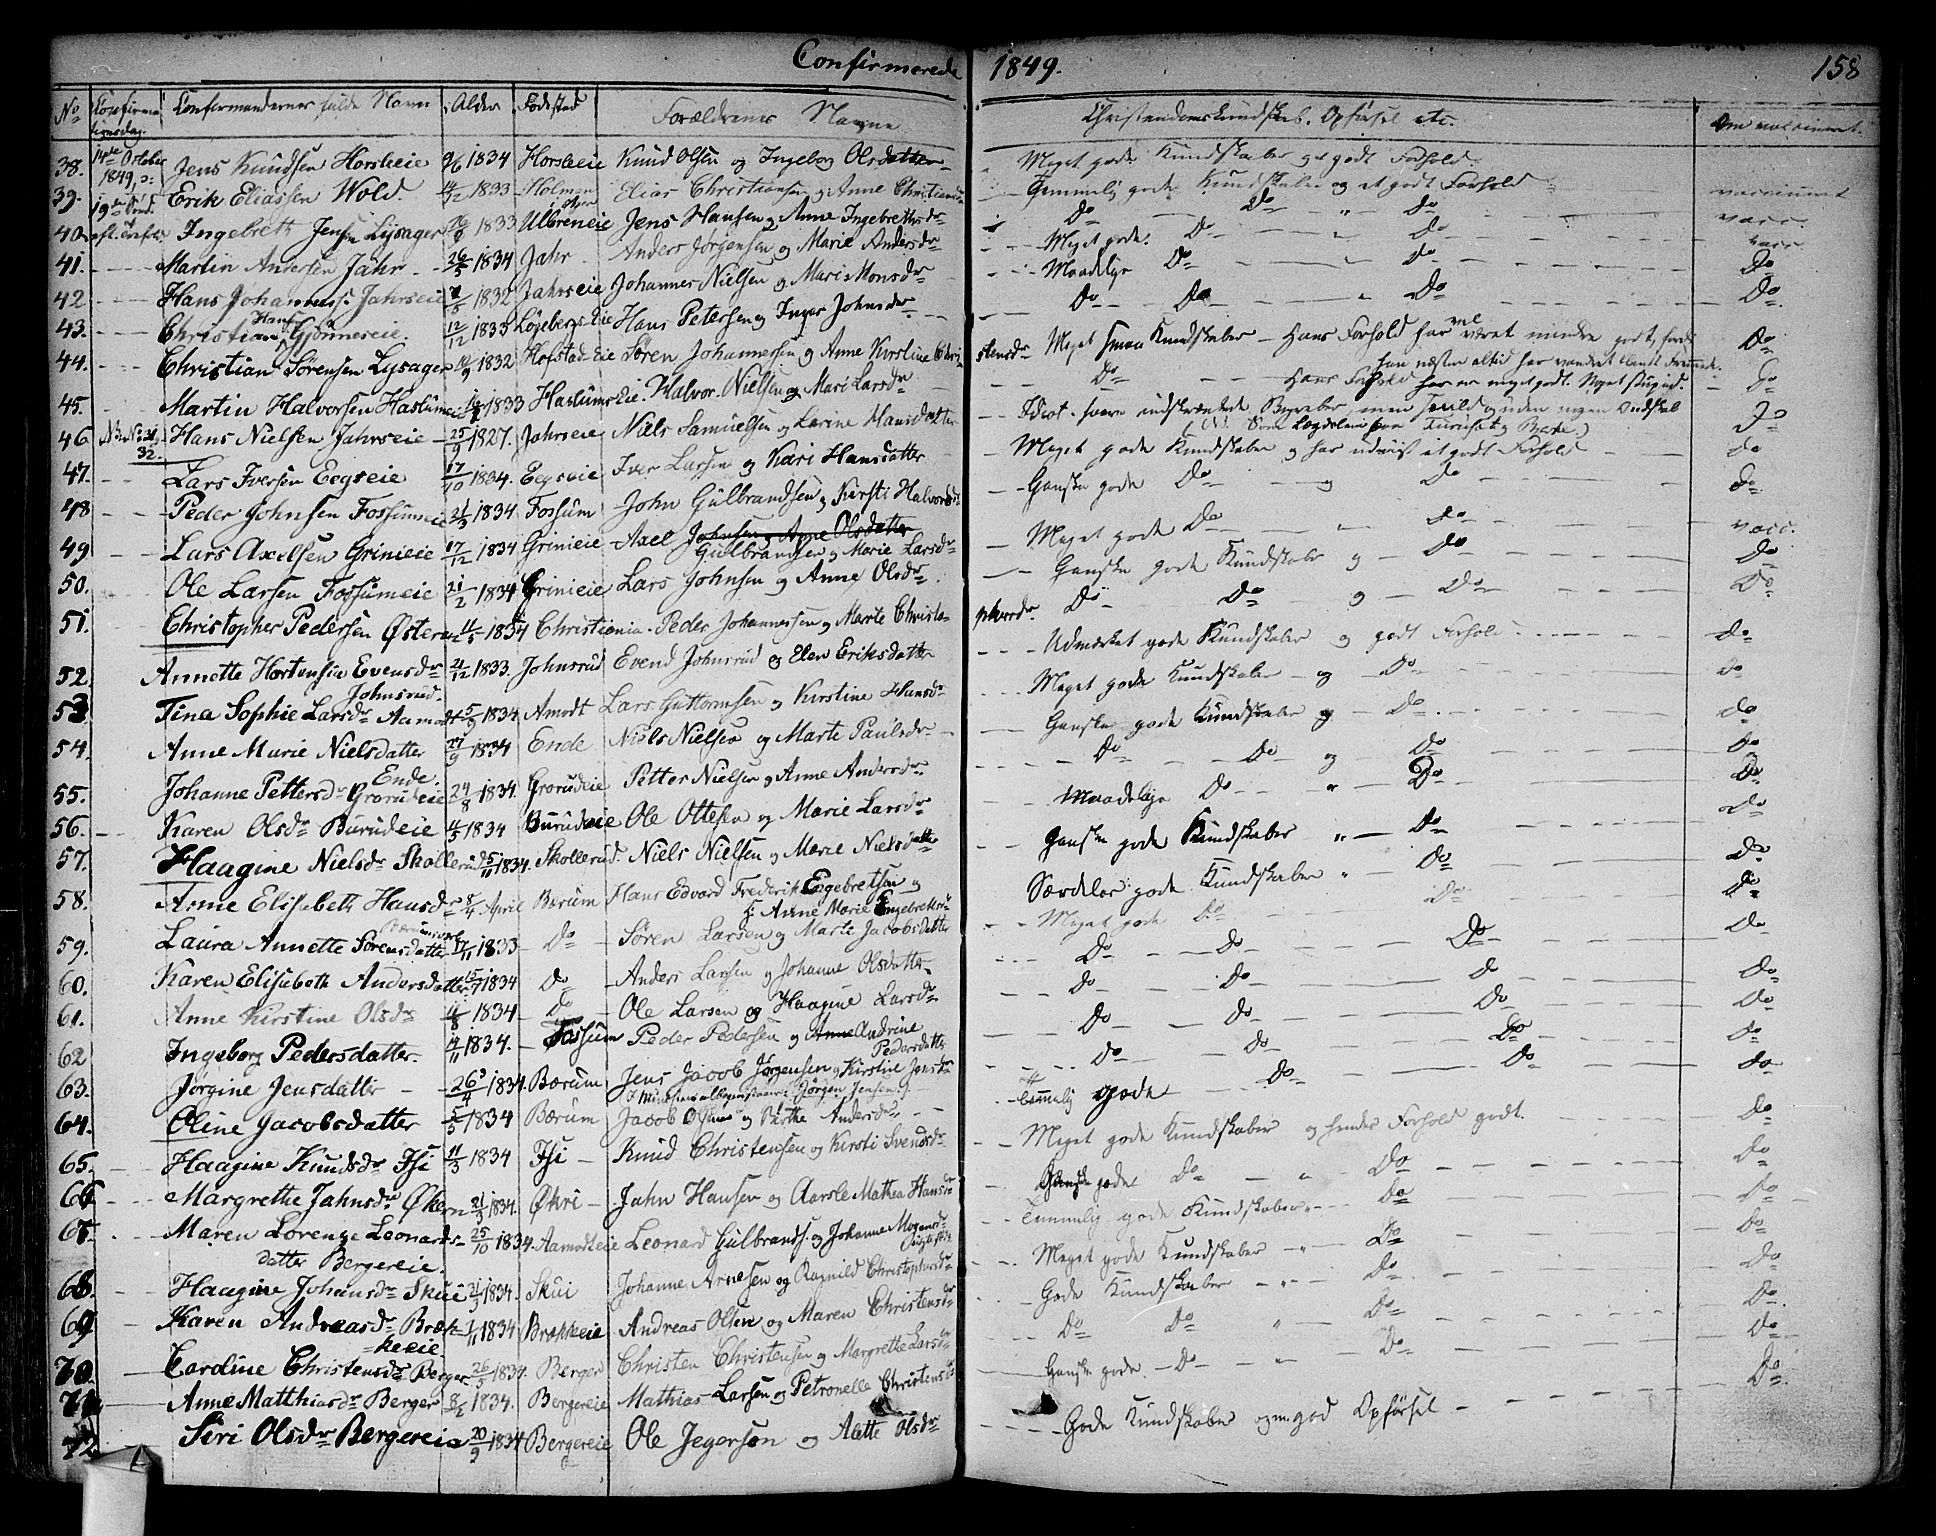 Confirmerede 1849. 158
No Confirmationsdag. Confirmandernes fulde Navn Alder Fødested Forældrenes Navne Christendomskundskab, Opførsel etc. Om vaccineret.
38. 14de October 1849, Jens Knudsen Horsleeie 1834 Horsleeie Knud Olsen og Ingeborg Olsdatter Meget gode Kundskaber og godt Forhold.
39. 19de Sönd. Erik Eliassen Wold. 1833 Holmen Elias Christiansen og Anne Temmelig gode Kundskaber og et godt Forhold vaccineret
40. eft. Trefold. Ingebrett Jensen Lysager 1833 Ulbreneie Jens Hansen og Anne Ingebrethsdr Do Do " Do vacc.
41. Martin Andersen Jahr 26/5 1834 Jahr Anders Jørgensen og Marie Andersdr Meget gode. Do Do vacc.
42. Hans Johanness. Jahrseie 1832 Jahrseie Johannes Nielsen og Mari Monsdr Maadelige Do Do Do
43. Christian Hansen Gjönneseie. 12/12 1833 Eie Hans Petersen og Inger Johnsdr Do Do " Do Do.
44. Christian Sörensen Lysager 1832 Hofstad Eie Sören Johannersen og Anne Kirstine Christensdr Meget smaa Kundskaber Hans Forhold har vel været mindre godt, fordi Do
han næsten altid har vandret iblandt Fremmede.
45. Martin Halvorsen Haslumeie 1833 Haslums Eie Halvor Nielsen og Mari Larsdr Do Hans Forhold har er meget godt. Meget stupid. Do
46 NB. No 31, 32. Hans Nielsen Jahrseie 25/9 1827. Jahrseie Niels Samuelsen og Karine Hansdatter Idiot. svare indskrænkede Begreber, men Do
47. Lars Iversen Eegseie 17/10 1834. Eegseie Iver Larsen og Kari Hansdatter Meget gode Kundskaber og har udvist et godt Forhold do
48 Peder Johnsen Fossumeie 21/3 1834 Fossum John Gulbrandsen og Kirsti Halvorsdr Ganske gode Do og do Do.
49 Lars Axelsen Grinieie 17/12 1834 Grinieie Axel Johnsen og Anne Olsdatter Meget gode Do Do vacc.
Gulbrandsen og Marie Larsdr
50. Ole Larsen Fossumeie 21/2 1834 Grinieie Lars Johnsen og Anne Olsdr. Ganske gode Kundskaber og Do Do
51. Christopher Pedersen Østern 11/5 1834 Christiania. Peder Johannessen og Marte Christophersdr. Do Do og Do Do
52. Annette Hortensia Evensdr Johnsrud 21/12 1833. Johnsrud Evend Johnsrud og Elen Eriksdatter Udmærket gode Kundskaber og godt Forhold. do
53 Tina Sophie Larsdr Aamodt 5/9 1834. Amodt Lars Guttormsen og Kirstine Hansdr Meget gode Kundskaber og Do do
54. Anne Marie Nielsdatter Ende. 27/9 1834 Ende Niels Nielsen og Marte Paulsdr Ganske gode Kundskaber og Do. do
55. Johanne Pettersdr Grorudeie 24/8 1834. Grorudeie Petter Nielsen og Anne Andersdr Do Do og Do Do
56. Karen Olsdr Burudeie 11/5 1834 Burudeie Ole Ottesen og Marie Larsdr Maadelige Do " Do Do
57. Haagine Nielsdr Skollerud 5/11 1834. Skollerud. Niels Nielsen og Marie Nielsdatter Ganske gode Kundskaber " Do do
58. Anne Elisabeth Hansdr Bærumsverk 8/4 April Bærum Hans Edvard Frederik Engebretsen og Særdeles gode Kundskaber " Do Do
Anne Marie Engebretsdr
59. Laura Annette Sörensdatter 17/11 1833 Do Sören Larsen og Marte Jacobsdatter Meget gode Do Do Do
60. Karen Elisabeth Andersdatter 15/7 1834 Do Anders Larsen og Johanne Olsdatter Do Do Do do
61. Anne Kirstine Olsdr 11/8 1834 Do Ole Larsen og Haagine Larsdr Do Do do Do
62 Ingeborg Pedersdatter. 14/11 1834. Fossum Peder Pedersen og Anne Andrine Pedersdatter Do Do Do Do
63. Jorgine Jensdatter 26/4 1834. Bærum Jens Jacob Jörgensen og Kirstine Jensdr Do Do Do Do
64. Oline Jacobsdatter 5/5 1834 Bærum Jacob Olsen og Birthe Andersdr Temmelig gode Do Do do
65. Haagine Knudsdr Isi 11/3 1834 Isi Knud Christensen og Kirsti Svendsdr Meget gode Kundskaber og hendes Forhold godt. Do
66 Margrethe Jahnsdr Økern 21/9 1834. Økri Jahn Hansen og Aarsle Mathea Hansdr Ganske gode Do " Do Do
67. Maren Lorense Leonardsdatter Bergereie. 25/10 1834. Aamodteie Leonard Gulbrands. og Johanne Mogensdr Temmelig gode Kundskaber Do Do
68. Haagine Johansdr Skui 21/9 1834. Skui Johanne Arnesen og Ragnild Christophersdr Meget gode Kundskaber " Do Do
69 Karen Andreasdr Brækkeeie. 7/11 1834 Brækkeeie Andreas Olsen og Maren Christensdr Gode Kundskaber " Do. Do
70. Caroline Christensdr Berger 26/5 1834. Berger Christen Christensen og Margrethe Larsdr Do Do " Do Do
71. Anne Matthiasdr Berger 8/2 1834. Bergereie Mathias Larsen og Petronelle Christensdr Ganske gode. Do " Do Do
72 Siri Olsdr Bergereie 20/9 1834 Bergereie Ole Jegersen og Alette Olsdr Gode Kundskaber og en god Opførsel Do.